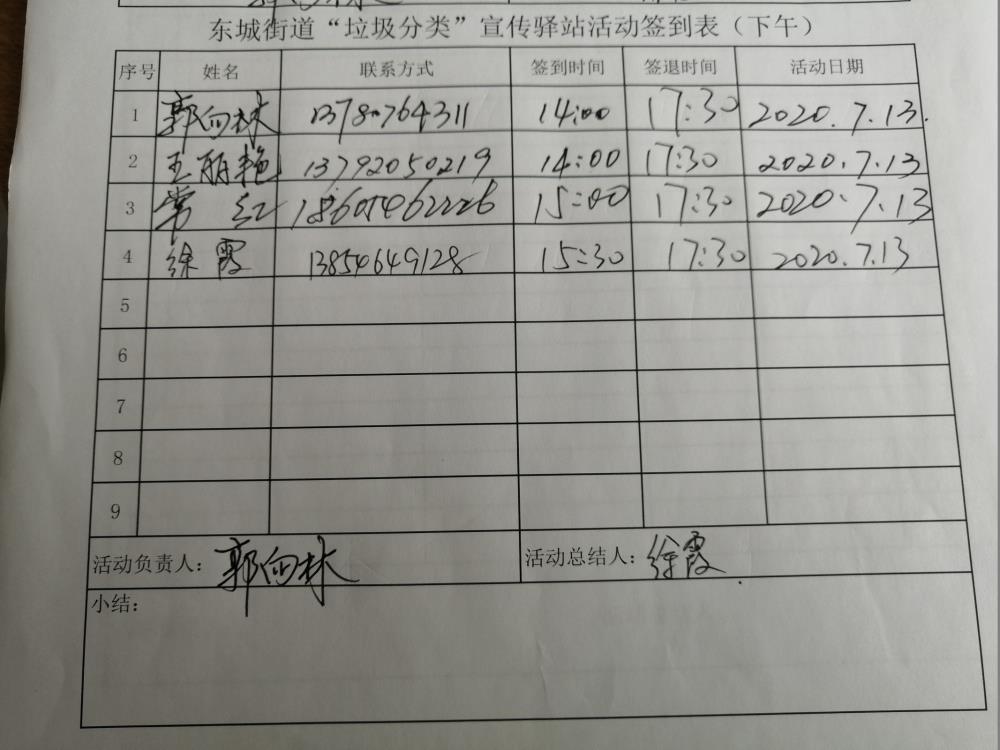 东城街道“垃圾分类”宣传驿站活动签到表（下午）
序号 姓名 联系方式 签到时间 签退时间 活动日期
1 郭向林 13780764311 14:00 17:30 2020.7.13.
2 王丽艳 13792050219 14:00 17:30 2020.7.13
3 常红 18605462226 15:00 17:30 2020.7.13
4 徐霞 13854649128 15:30 17:30 2020.7.13
5
6
7
8
9
活动负责人：郭向林 活动总结人：徐霞
小结：